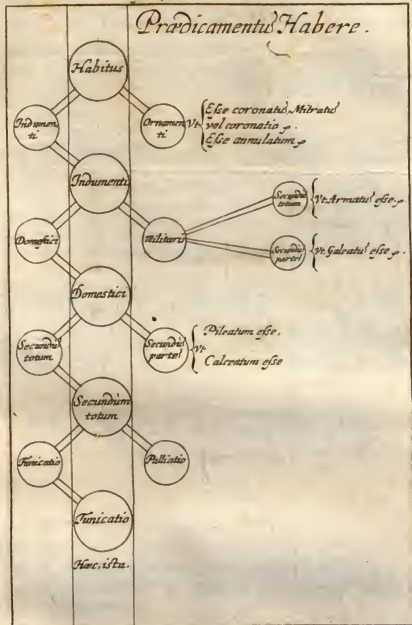 Prædicamentũ Habere.
Habitus
Indumenti
Ornamenti
Vt
Esse coronatũ, Mitratũ
vel coronatio
Esse annulatum
Indumenti
Domestici
Militaris
Secundũ totum
Vt Armatũ esse
Secundũ partẽ
Vt Galeatũ esse
Domestici
Secundũ totum
Secundũ partẽ
Vt
Pileatum esse,
Calceatum esse
Secundũm totum
Tunicatio
Palliatio
Tunicatio
Hæc, ista.